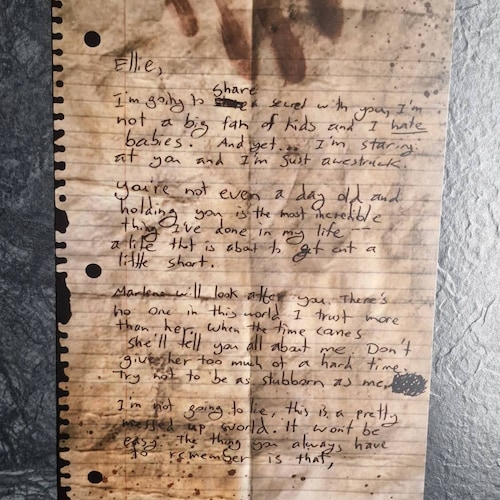 Ellie,
Share
I'm going to a secret with you, I'm
not a big fan of kids and I hate
babies. And yet... I'm staring
at you and I'm just awestruck.
You're not even a day old and
holding you is the most incredible
thing I've done in my life --
a life that is about to get cut a
little short.
Marlene will look after you. There's
no one in this world I trust more
than her. When the time comes
she'll tell you all about me. Don't
give her too much of a hard time.
Try not to be as stubborn as me.
I'm not going to lie, this is a pretty
messed up world. It won't be
easy. The thing you always have
to remember is that,